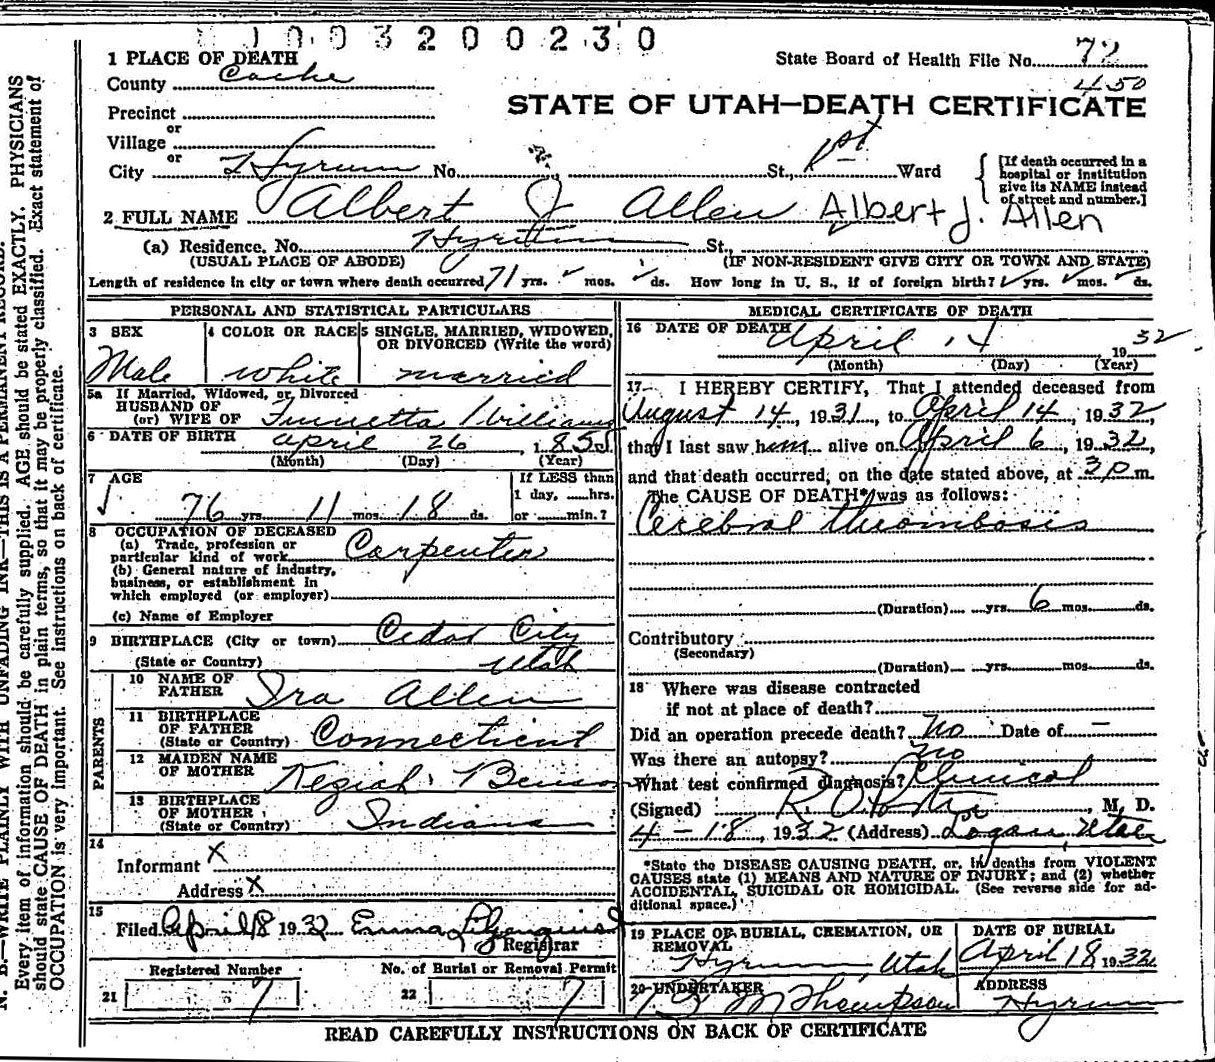 1003200230
1 PLACE OF DEATH
State Board of Health File No. 72
County Cache
450
STATE OF UTAH—DEATH CERTIFICATE
Precinct
or
Village
or
City Hyrum No. St., 1st Ward
[If death occurred in a
hospital or institution
give its NAME instead
of street and number.]
2 FULL NAME Albert J Allen Albert J. Allen
(a) Residence, No. Hyrum St.,
(USUAL PLACE OF ABODE) (IF NON-RESIDENT GIVE CITY OR TOWN AND STATE)
Length of residence in city or town where death occurred 71 yrs. mos. ds. How long in U. S., if of foreign birth? yrs. mos. ds.
PERSONAL AND STATISTICAL PARTICULARS
3 SEX
Male
4 COLOR OR RACE
white
5 SINGLE, MARRIED, WIDOWED,
OR DIVORCED (Write the word)
married
5a If Married, Widowed, or Divorced
HUSBAND OF
(or) WIFE OF Williams
6 DATE OF BIRTH April 26, 1855
(Month) (Day) (Year)
7 AGE
76 yrs. 11 mos. 18 ds.
If LESS than
1 day, ......hrs.
or ......min.?
8 OCCUPATION OF DECEASED
(a) Trade, profession or
particular kind of work Carpenter
(b) General nature of industry,
business, or establishment in
which employed (or employer)
(c) Name of Employer
9 BIRTHPLACE (City or town) Cedar City
(State or Country) Utah
PARENTS
10 NAME OF
FATHER Ira Allen
11 BIRTHPLACE
OF FATHER
(State or Country) Connecticut
12 MAIDEN NAME
OF MOTHER Keziah Benson
13 BIRTHPLACE
OF MOTHER
(State or Country) Indiana
14
Informant X
Address X
15
Filed April 18 1932 Emma Liljenquist
Registrar
Registered Number
21 7
No. of Burial or Removal Permit
22 7
MEDICAL CERTIFICATE OF DEATH
16 DATE OF DEATH April 14 1932
(Month) (Day) (Year)
17 I HEREBY CERTIFY, That I attended deceased from
August 14, 1931, to April 14, 1932
that I last saw him alive on April 6, 1932,
and that death occurred, on the date stated above, at 3 p.m.
The CAUSE OF DEATH* was as follows:
Cerebral thrombosis
(Duration) yrs. 6 mos. ds.
Contributory
(Secondary)
(Duration) yrs. mos. ds.
18 Where was disease contracted
if not at place of death?
Did an operation precede death? No Date of —
Was there an autopsy? no
What test confirmed diagnosis? Clinical
(Signed) M. D.
4-18, 1932 (Address) Logan, Utah
*State the DISEASE CAUSING DEATH, or, in deaths from VIOLENT
CAUSES state (1) MEANS AND NATURE OF INJURY; and (2) whether
ACCIDENTAL, SUICIDAL OR HOMICIDAL. (See reverse side for ad-
ditional space.)
19 PLACE OF BURIAL, CREMATION, OR
REMOVAL
Hyrum, Utah
DATE OF BURIAL
April 18, 1932
20 UNDERTAKER
M Thompson
ADDRESS
Hyrum
READ CAREFULLY INSTRUCTIONS ON BACK OF CERTIFICATE
N. B.—WRITE PLAINLY WITH UNFADING INK—THIS IS A PERMANENT RECORD.
Every item of information should be carefully supplied. AGE should be stated EXACTLY. PHYSICIANS
should state CAUSE OF DEATH in plain terms, so that it may be properly classified. Exact statement of
OCCUPATION is very important. See instructions on back of certificate.